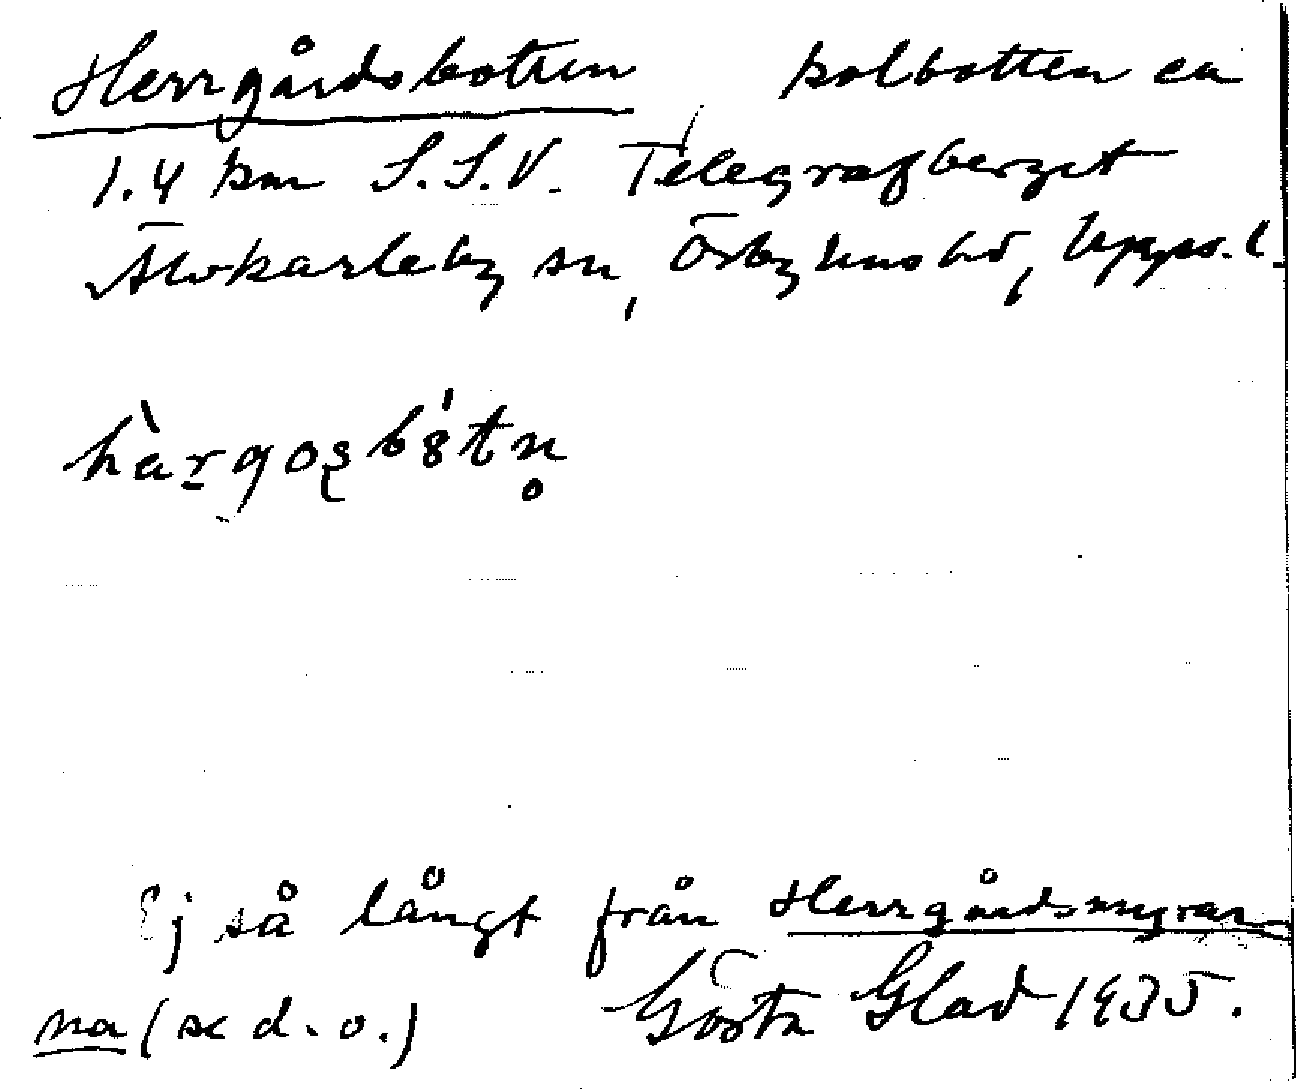 Herrgårdsbotten kolbotten ca
1.4 km S.S.V. Telegrafberget
Älvkarleby sn, Örbyhus hd, Upps. l.
hàrgosbótn̥
Ej så långt från Herrgårdsmyrar
na (se d. o.) Gösta Glad 1935.